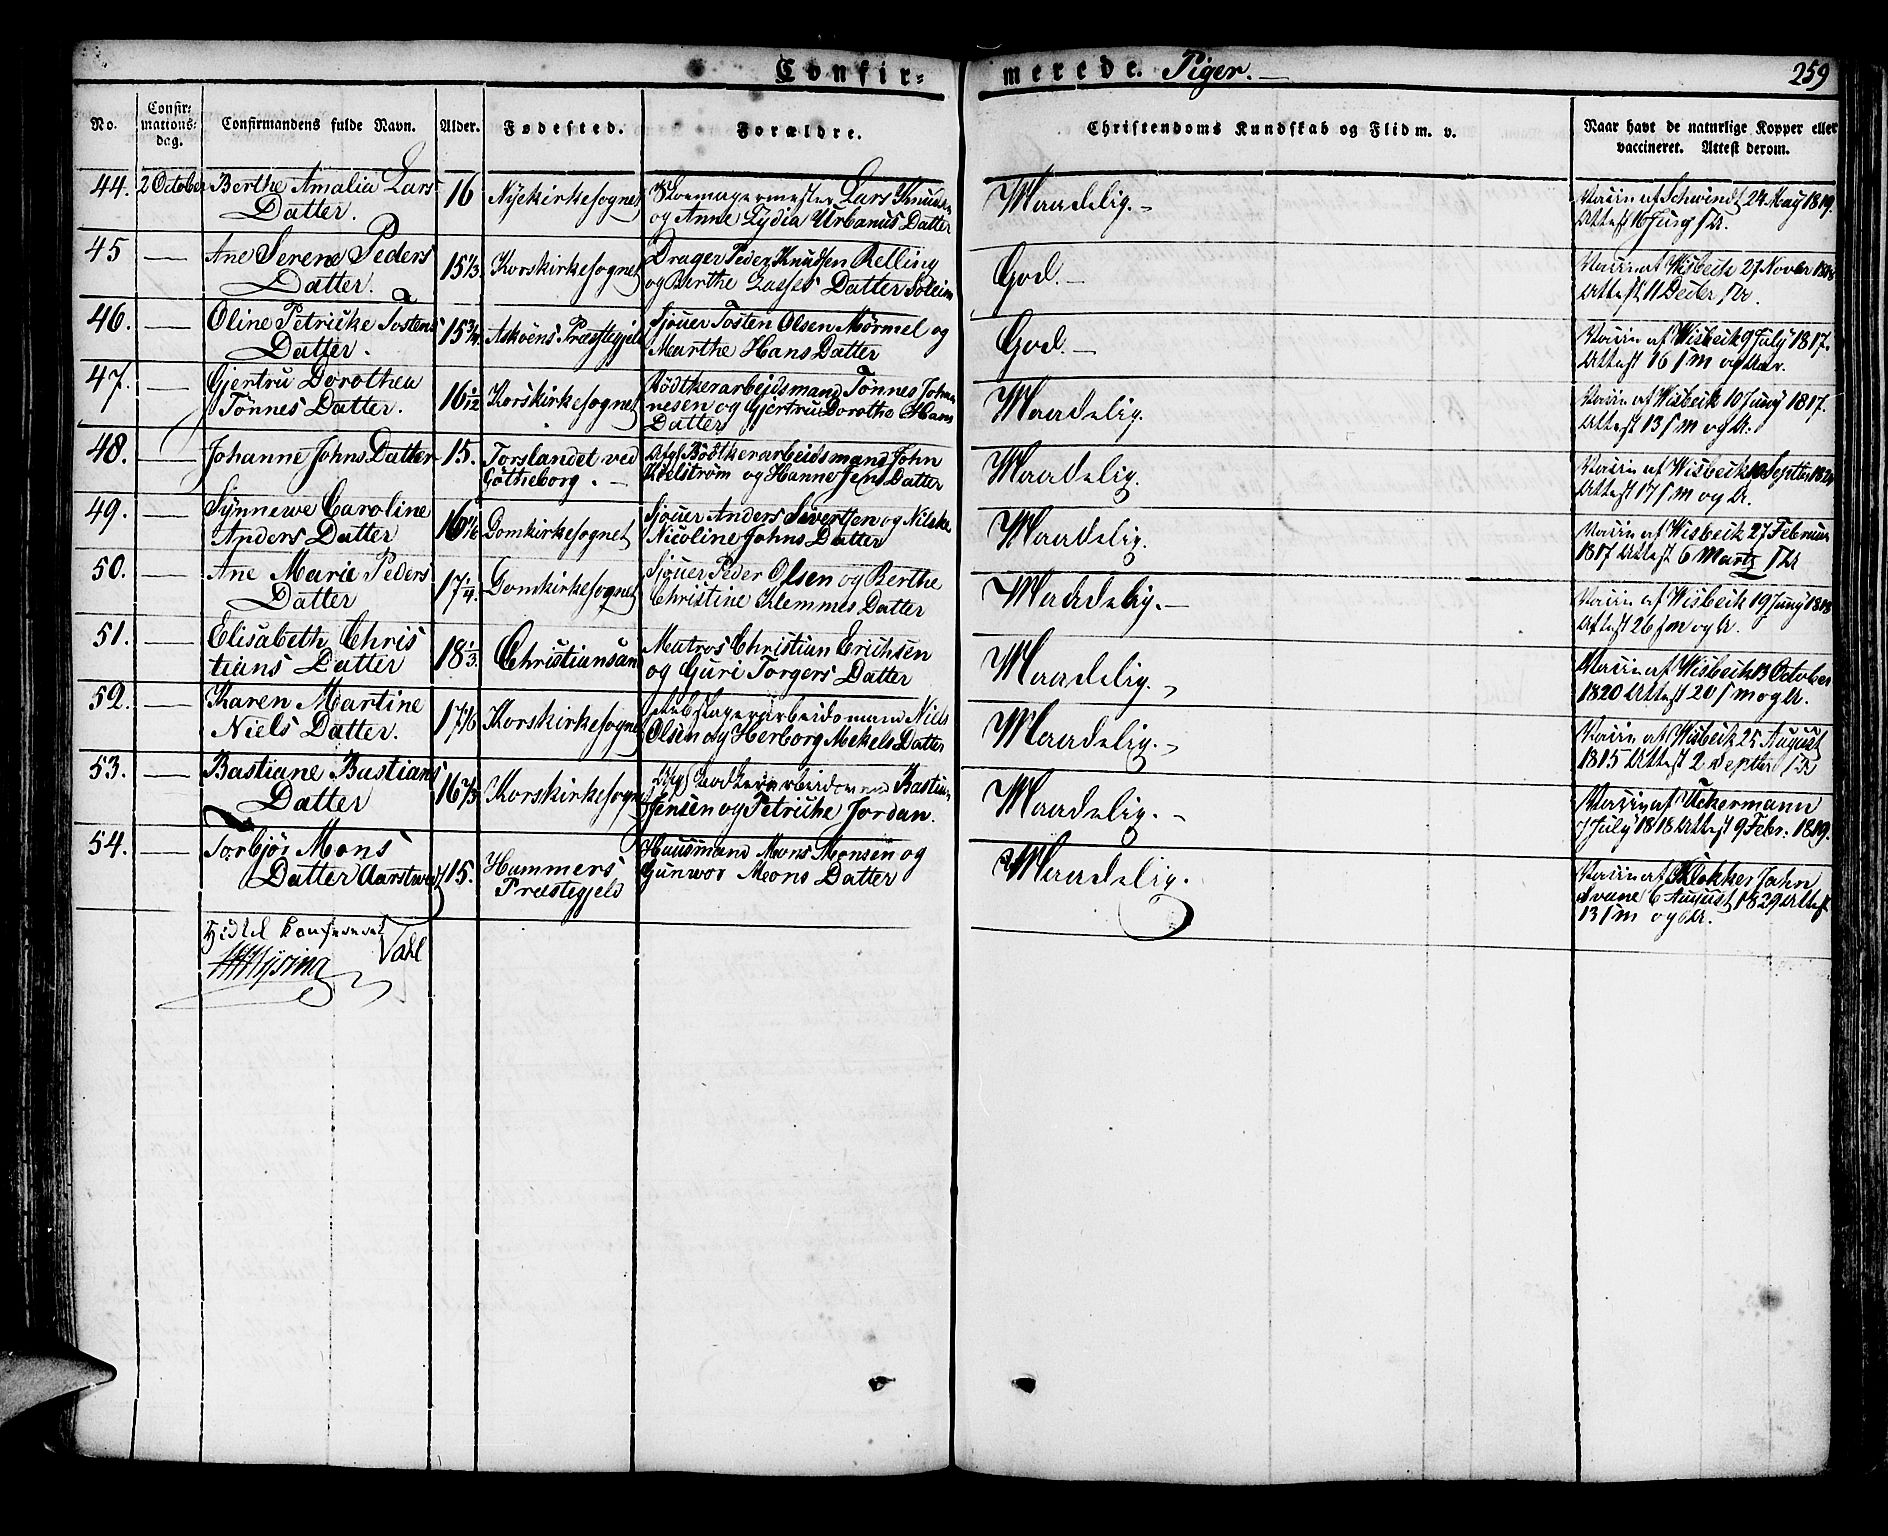 Confirmerede Piger.
259
No.
Confirmationsdag.
Confirmandens fulde Navn.
Alder.
Fødested.
Forældre.
Christendoms Kundskab og Flid m. v.
Naar havt de naturlige Kopper eller
vaccineret. Attest derom.
44. 2 October Berthe Amalia Lars
Datter.
16
Nyekirkesognet
Skoemagermester Lars Knudsen
og Anne Lydia Urbanus Datter
Maadelig.
Vaccin af Schwindt 24 May 1819.
Attest 16 Juny
45 — Ane Serene Peders
Datter.
15 1/3
Korskirkesognet
Drager Peder Knudsen Relling
og Berthe Lasses Datter Soleim
God.
Vaccin af Wisbech 27 Novbr
Attest 11 Decbr
46. — Oline Petricke Tostens
Datter.
15 3/4
Askøens Præstegjeld
Sjouer Tosten Olsen Mørmel og
Marthe Hans Datter
God.
Vaccin af Wisbech 9 July 1817.
Attest 16
47. — Gjertru Dorothea
Tønnes Datter.
16 1/12
Korskirkesognet
Bødtkerarbejdsmand Tønnes Johan
nesen og Gjertru Dorotha Hans
Datter
Maadelig.
Vaccin af Wisbech 10 Juny 1817.
Attest 13
48. — Johanne Johns Datter
15.
Torslandet ved
Gøtheborg.
Afg Bødtkerarbeidsmand John
Kielstrøm og Hanne Jens Datter
Maadelig.
Vaccin af Wisbech
Attest 17
49. — Synnewe Caroline
Anders Datter
16
Domkirkesognet
Sjouer Anders Sivertsen og Nilske
Nicoline Johns Datter
Maadelig.
Vaccin af Wisbech 27 Februar
1817 Attest 6 Martz
50. — Ane Marie Peders
Datter
17 1/4.
Domkirkesognet
Sjouer Peder Olsen og Berthe
Christine Klemmes Datter
Maadelig.
Vaccin af Wisbech 19 Juny 1818
Attest 26
51. — Elisabeth Chris
tians Datter
18 1/3.
Christiansan
Matros Christian Erichsen
og Guri Torgers Datter
Maadelig.
Vaccin af Wisbech 13 October
1820 Attest 20
52. — Karen Martine
Niels Datter.
17
Korskirkesognet
Niels
Olsen og Herborg Mekels Datter
Maadelig.
Vaccin af Wisbech 25 August
1815 Attest 2 Septbr
53. — Bastiane Bastians
Datter
16
Korskirkesogne
Afg Bødkerarbeidsmand Bastian
Jensen og Petricke Jordan.
Maadelig.
Vaccin af Uckermann
7 July 1818 Attest 9 Febr. 1819.
54. — Torbjør Mons
Datter Aarstwedt
15.
Hammers
Præstegjeld
Huusmand Mons Monsen og
Gunwor Mons Datter
Maadelig.
Vaccin af Klokker Jahn
Svane 6 August 1829 Attest
13
Hidtil confereret
Vahl